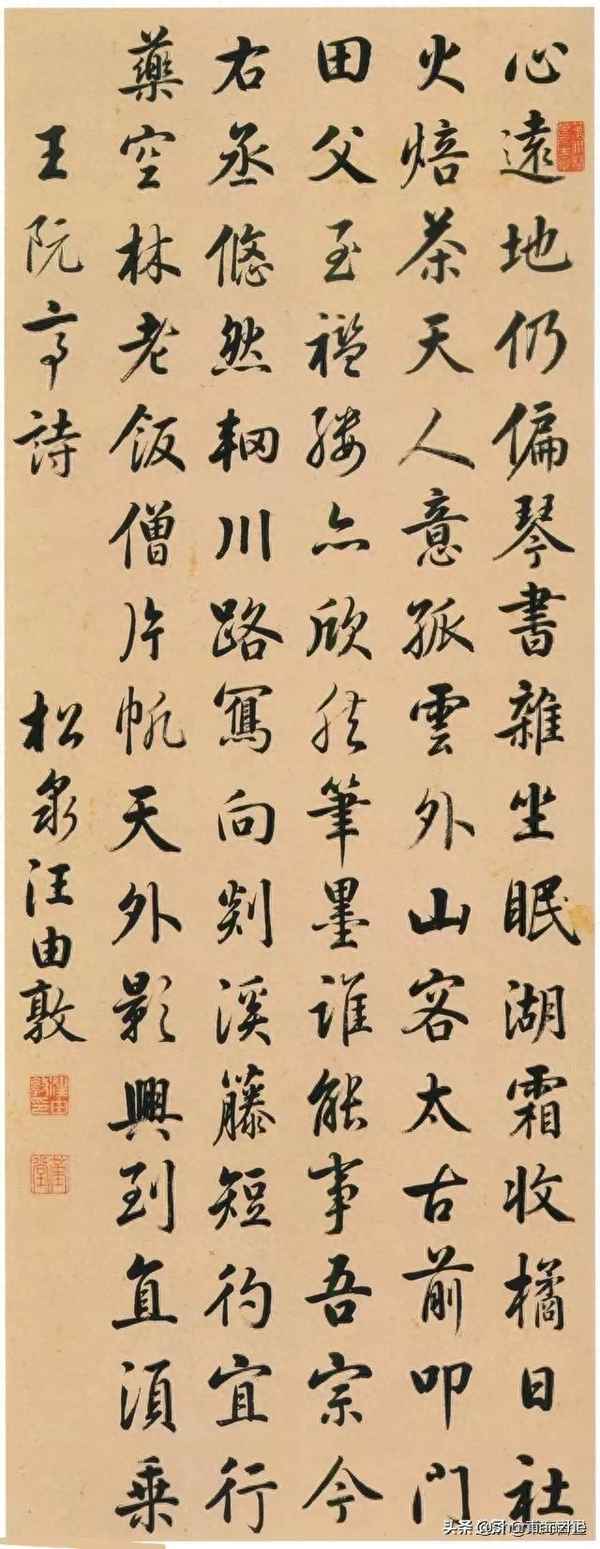 心遠地仍偏琴書雜坐眠湖霜收橘日社
火焙茶天人意孤雲外山容太古前叩門
田父至襤縷亦欣然筆墨誰能事吾宗今
右丞悠然輞川路寫向剡溪藤短彴宜行
藥空林老飯僧片帆天外影興到直須乘
王阮亭詩 松泉汪由敦
头条